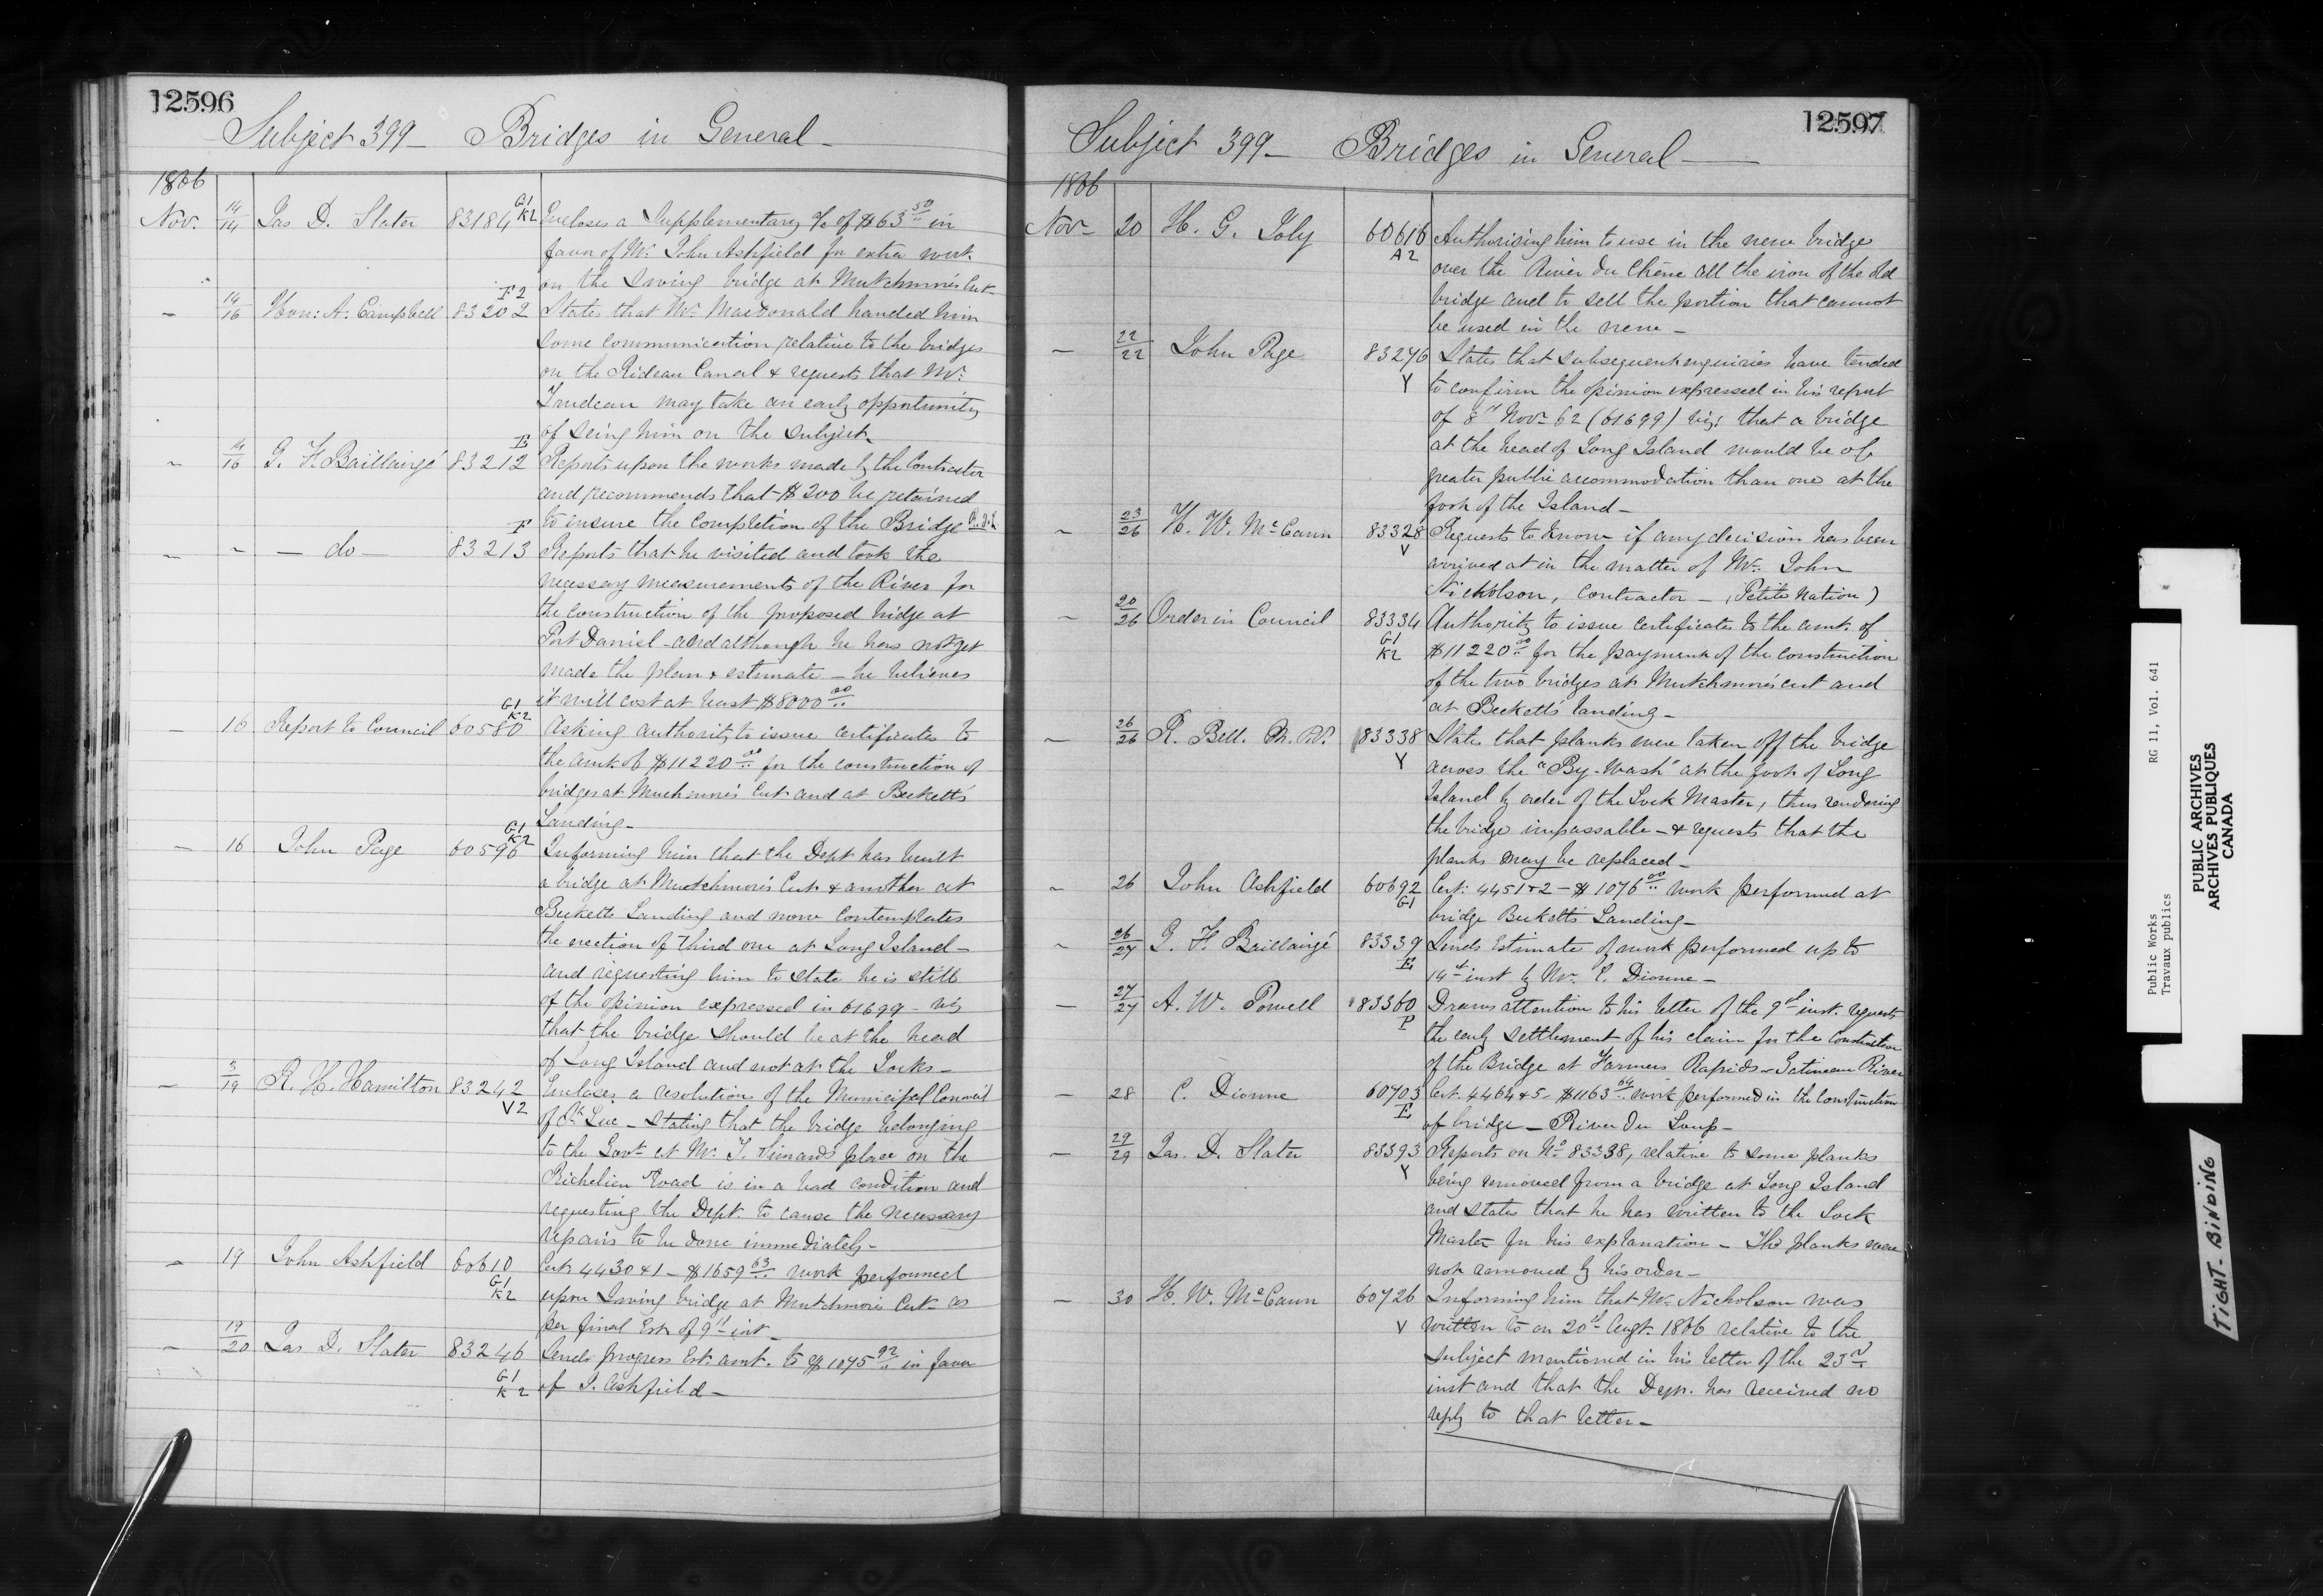 12596
Subject 399 — Bridges in General —
1866
Nov. 14/14 Jas D. Slater 83184 G1 K2 Encloses a Supplementary % of $63 50 in
favor of Mr. John Ashfield for extra work
on the Swing bridge at Mutchmore's Cut
— 14/16 Hon: A. Campbell 83202 F2 States that Mr. MacDonald handed him
some communication relative to the bridges
on the Rideau Canal & requests that Mr.
Trudeau may take an early opportunity
of seing him on the subject.
— 14/16 G. F. Baillairgé 83212 E Reports upon the works made by the Contractor
and recommends that $200 be retained
to insure the completion of the Bridge R.d.L
— — do — 83213 F Reports that he visited and took the
necessary measurements of the River for
the construction of the proposed bridge at
Port Daniel - and although he has not yet
made the plan & estimate — he believes
it will cost at least $8000 00
— 16 Report to Council 60580 G1 K2 Asking authority to issue certificates to
the amt of $11220 00 for the construction of
bridges at Muchmore's Cut and at Becketts
Landing —
— 16 John Page 60596 G1 K2 Informing him that the Dept has built
a bridge at Mutchmore's Cut & another at
Becketts Landing and now Contemplates
the erection of third one at Long Island —
and requesting him to state he is still
of the opinion expressed in 61699 - viz
that the bridge should be at the head
of Long Island and not at the Locks —
— 3/19 R. H. Hamilton 83242 V2 Encloses a resolution of the Municipal Council
of St Luc — stating that the bridge belonging
to the Govt at Mr. T. Simards place on the
Richelieu Road is in a bad condition and
requesting the Dept. to cause the necessary
repairs to be done immediately —
— 19 John Ashfield 60610 G1 K2 Cert 4430 & 1 — $1659 63 work performed
upon Swing bridge at Mutchmore's Cut — as
per final Est of 9th inst —
— 19/20 Jas D. Slater 83246 G1 K2 Sends progress Est. amt. to $1075 92 in favor
of J. Ashfield —
12597
Subject 399 — Bridges in General —
1866
Nov 20 H. G. Joly 60616 A2 Authorising him to use in the new bridge
over the River du Chêne all the iron of the old
bridge and to sell the portion that cannot
be used in the new —
— 22/22 John Page 83276 Y States that subsequent enquiries have tended
to confirm the opinion expressed in his report
of 8th Nov 62 (61699) viz: that a bridge
at the head of Long Island would be of
greater public accommodation than one at the
foot of the Island —
— 23/26 H. W. McCann 83328 V Requests to know if any decision has been
arrived at in the matter of Mr. John
Nicholson, Contractor — (Petite Nation)
— 20/26 Order in Council 83334 G1 K2 Authority to issue certificates to the amt. of
$11220 00 for the payment of the construction
of the two bridges at Mutchmore's cut and
at Becketts landing —
— 26/26 R. Bell. M.P. 83338 Y States that planks were taken off the bridge
across the "By-Wash" at the foot of Long
Island by order of the Lock Master, thus rendering
the bridge impassable — & requests that the
planks may be replaced —
— 26 John Ashfield 60692 G1 Cert: 4451 & 2 — $1076 00 work performed at
bridge Beckett's Landing —
— 26/27 G. F. Baillairgé 83339 E Sends Estimate of work performed up to
14th inst by Mr. C. Dionne —
— 27/27 A. W. Powell 83360 P Draws attention to his letter of the 9th inst. requests
the early settlement of his claim for the Construction
of the Bridge at Farmers Rapids — Gatineau River
— 28 C. Dionne 60703 E Cert. 4464 & 5 — $1163 64 work performed in the Construction
of bridge — River du Loup —
— 29/29 Jas. D. Slater 83393 Y Reports on No 83338, relative to some planks
being removed from a bridge at Long Island
and states that he has written to the Lock
Master for his explanation — The planks were
not removed by his order —
— 30 H. W. McCann 60726 V Informing him that Mr. Nicholson was
written to on 20th Augt. 1866 relative to the
subject mentioned in his letter of the 23rd
inst and that the Dept. has received no
reply to that letter —
Public Works RG 11, Vol. 641
Travaux publics
PUBLIC ARCHIVES
ARCHIVES PUBLIQUES
CANADA
TIGHT BINDING